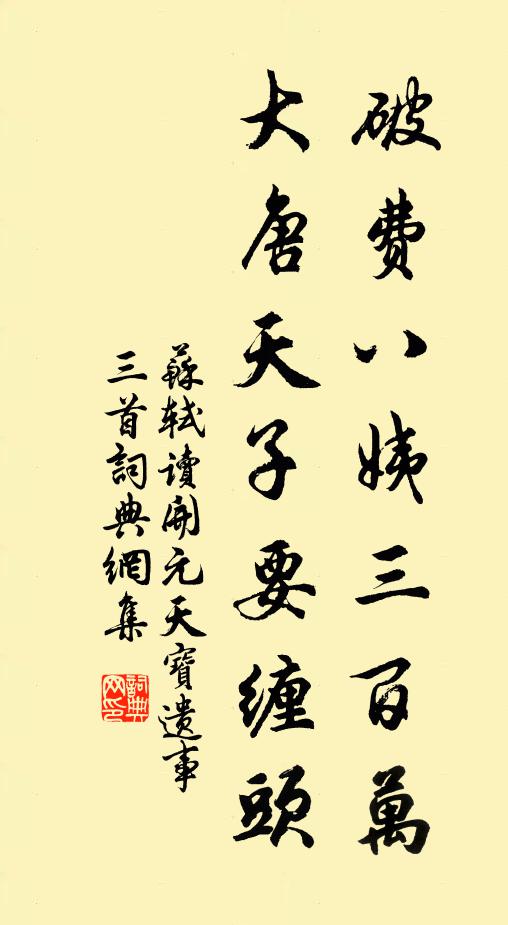 破費八姨三百萬
大唐天子要纏頭
蘇軾读開元天寶遺事
三首詞典網集
詞典
网印